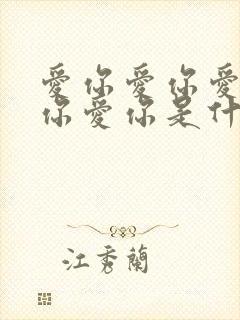 愛你愛你愛
你愛你是什
江秀蘭